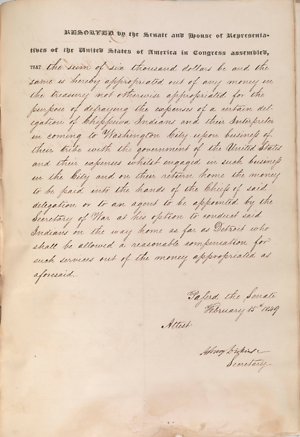 RESOLVED by the Senate and House of Representa-
tives of the United States of America in Congress assembled,
THAT the sum of six thousand dollars be and the
same is hereby appropriated out of any money in
the treasury not otherwise appropriated for the
purpose of defraying the expenses of a certain del-
egation of Chippewa Indians and their Interpreter
in coming to Washington City upon business of
their tribe with the government of the United States
and their expenses whilst engaged in such business
in the City and on their return home the money
to be paid into the hands of the Chief of said
delegation or to an agent to be appointed by the
Secretary of War at his option to conduct said
Indians on the way home as far as Detroit who
shall be allowed a reasonable compensation for
such services out of the money appropriated as
aforesaid.
Passed the Senate
February 15th 1849
Attest
Secretary